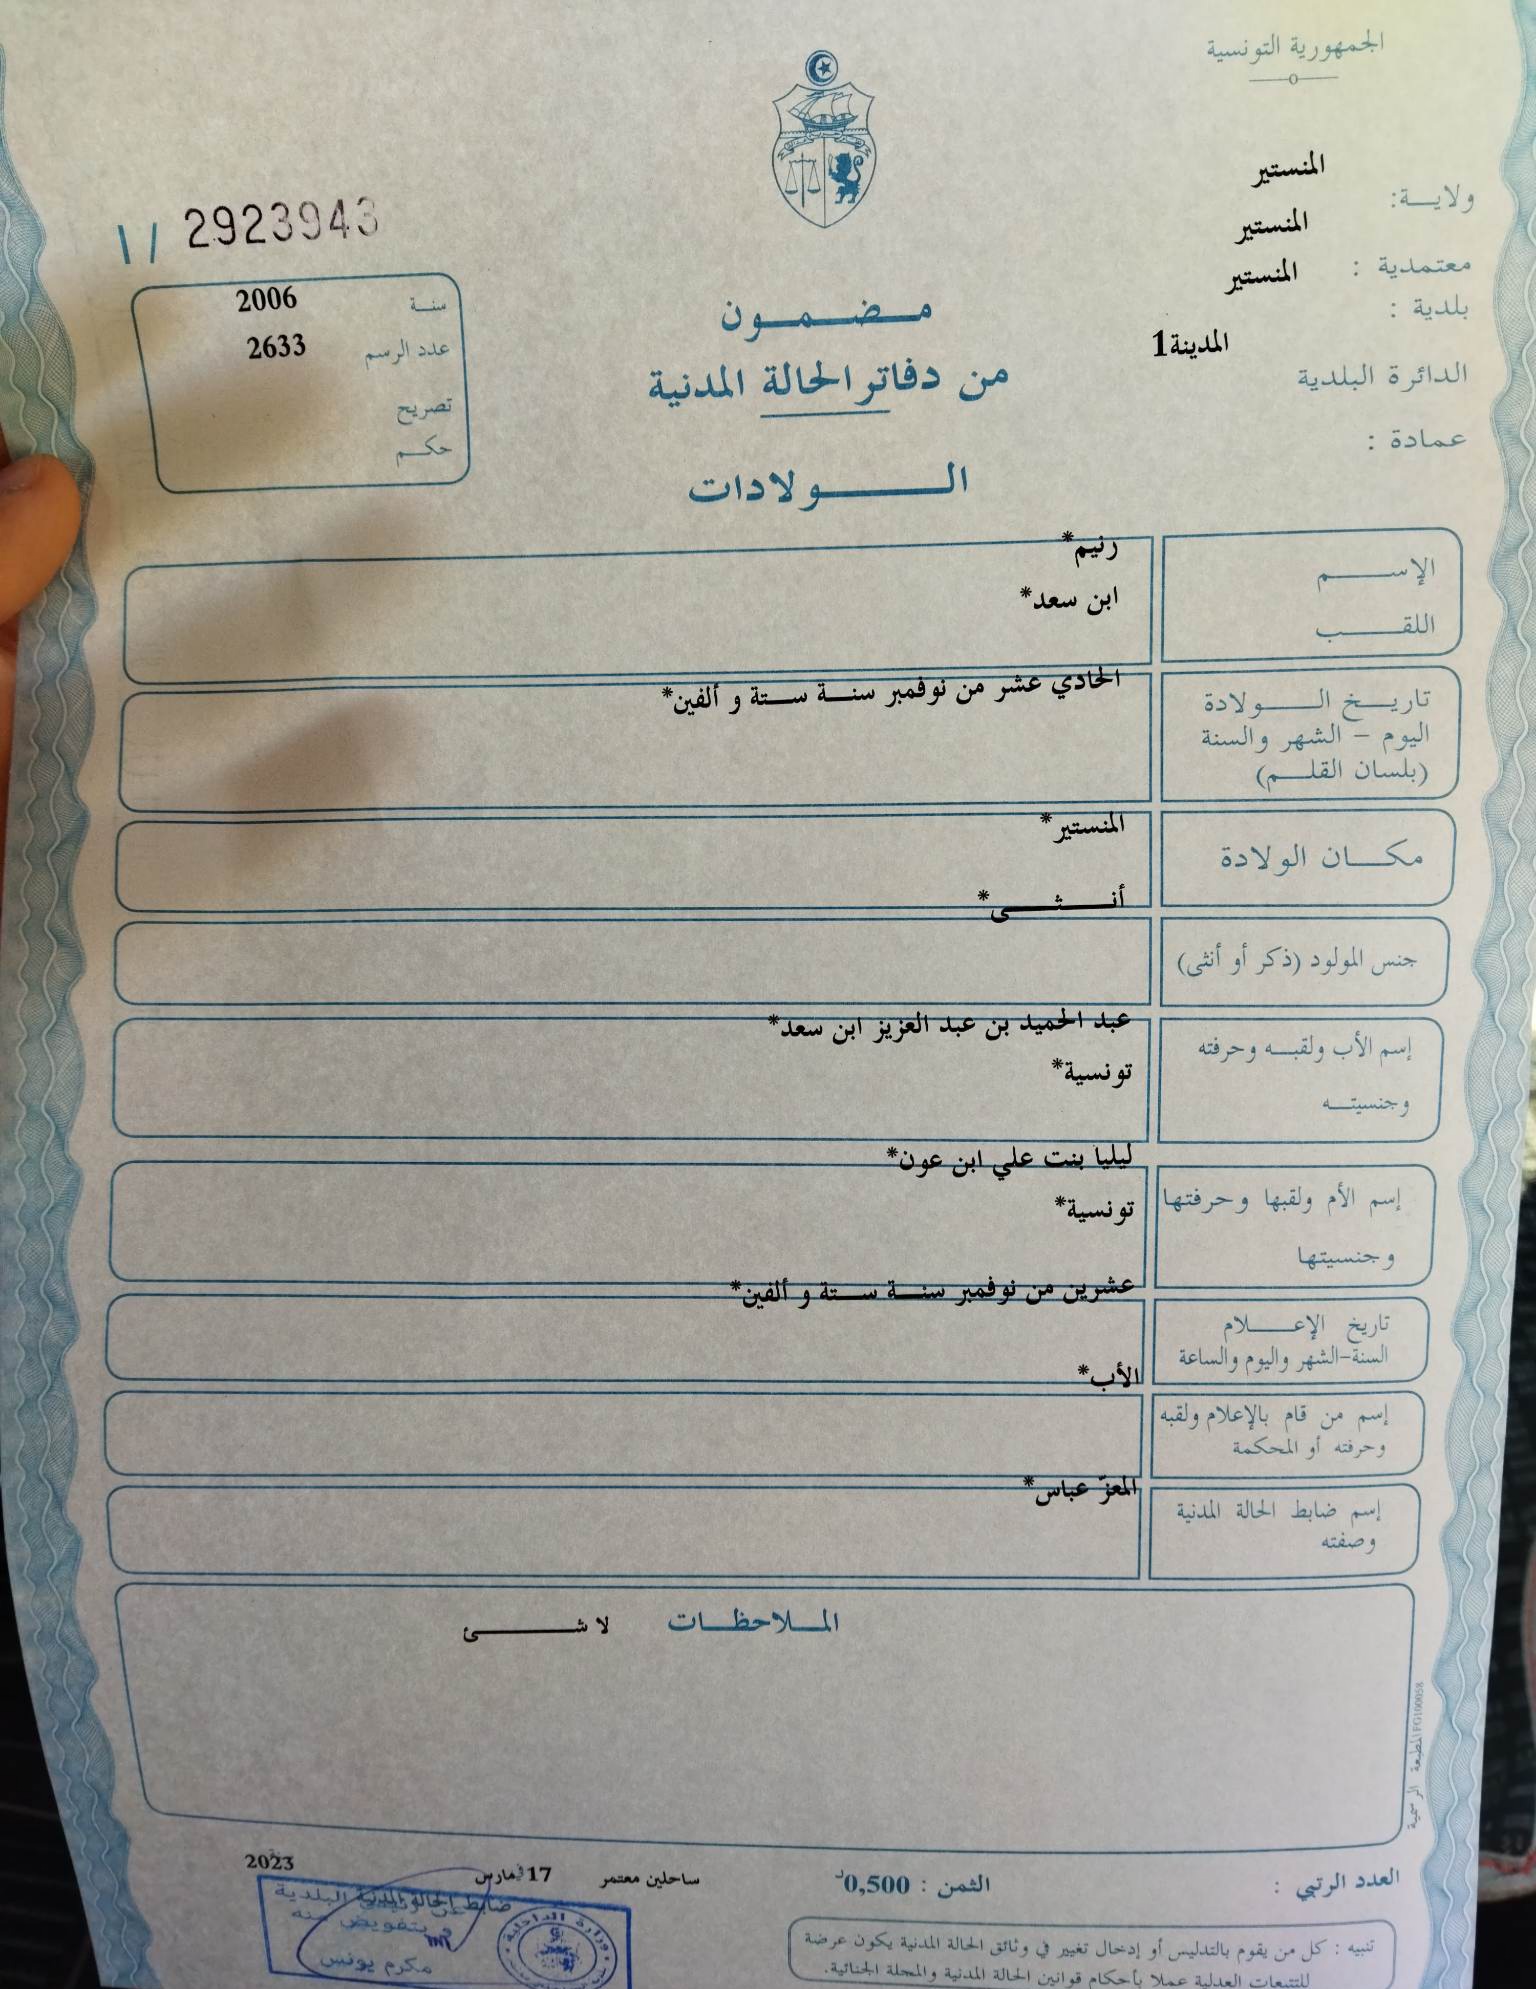 الجمهورية التونسية
ولايـــة: المنستير
معتمدية : المنستير
بلدية : المنستير
الدائرة البلدية المدينة1
عمادة :
1/ 2923943
سنـــة 2006
عدد الرسم 2633
تصريح
حكـــم
مـــضـــمـــون
من دفاتر الحالة المدنية
الـــــولادات
الإســـــم رنيم*
اللقـــــب ابن سعد*
تاريـــخ الـــــولادة الحادي عشر من نوفمبر سنـــة ستـــة و ألفين*
اليوم – الشهر والسنة
(بلسان القلـــم)
مكـــان الولادة المنستير*
جنس المولود (ذكر أو أنثى) أنـــثـــى*
إسم الأب ولقبـــه وحرفته عبد الحميد بن عبد العزيز ابن سعد*
وجنسيتـــه تونسية*
إسم الأم ولقبها وحرفتها ليليا بنت علي ابن عون*
وجنسيتها تونسية*
تاريخ الإعـــلام عشرين من نوفمبر سنـــة ستـــة و ألفين*
السنة-الشهر واليوم والساعة
إسم من قام بالإعلام ولقبه الأب*
وحرفته أو المحكمة
إسم ضابط الحالة المدنية المعزّ عباس*
وصفته
المـــلاحظـــات لا شـــــئ
المطبعة الرسمية FG100058
العدد الرتبي :
الثمن : 0,500د
ساحلين معتمر
17 مارس
2023
ضابط الحالة المدنية
البلدية
و بتفويض منه
مكرم يونس
وزارة الداخلية
تنبيه : كل من يقوم بالتدليس أو إدخال تغيير في وثائق الحالة المدنية يكون عرضة
للتتبعات العدلية عملا بأحكام قوانين الحالة المدنية والمجلة الجنائية.